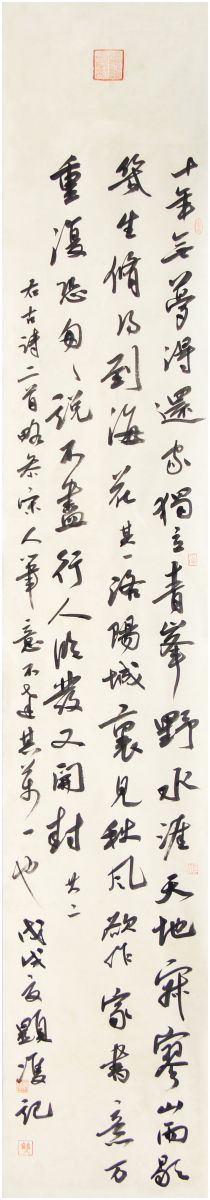 十年無夢得還家獨立青峯野水涯天地寂寥山雨歇
幾生脩得到梅花其一洛陽城裏見秋風欲作家書意万
重復恐匆々說不盡行人臨發又開封其二
右古詩二首略參宋人筆意不達其萬一也戊戌夏顯記